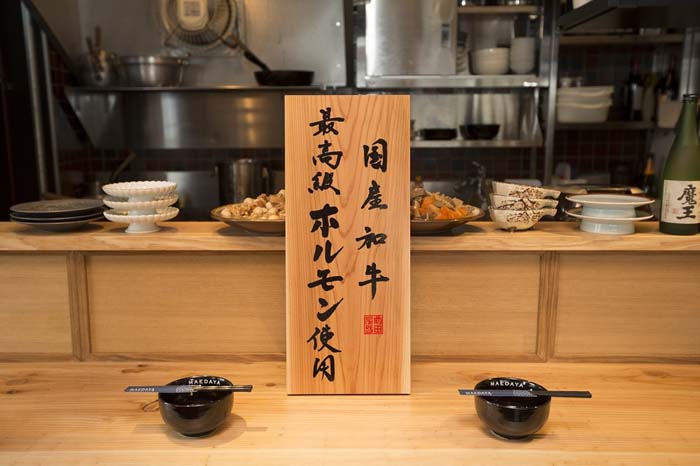 国産和牛
最高級ホルモン使用
魔王
MAEDAYA
MAEDAYA
MAEDAYA
MAEDAYA